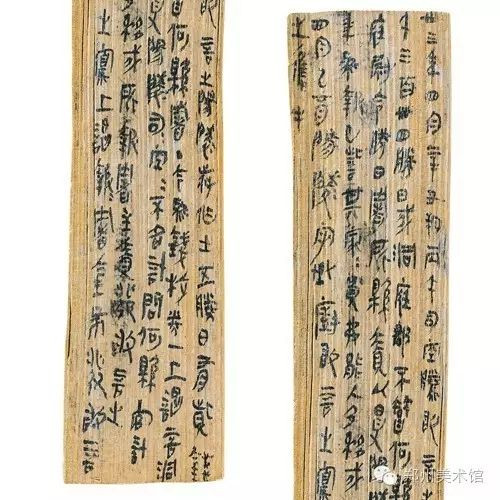 卅三年四月辛丑朔丙午司空騰敢言
千三百卌四勝日戍洞庭郡不智何縣
庭尉令勝日署所縣責以受陽陵
年為報已訾其家=貧弗能入乃移戍
四月己酉陽陵守丞廚敢言
之寫上
敢言之陽陵叔作士五勝日有貲
智何縣署今為錢校券一上謁言洞
受陽陵司空=不名計問何縣官計
乃移戍所報署主責發敢言之
之寫上謁報署金布發敢言
鄭州美术馆